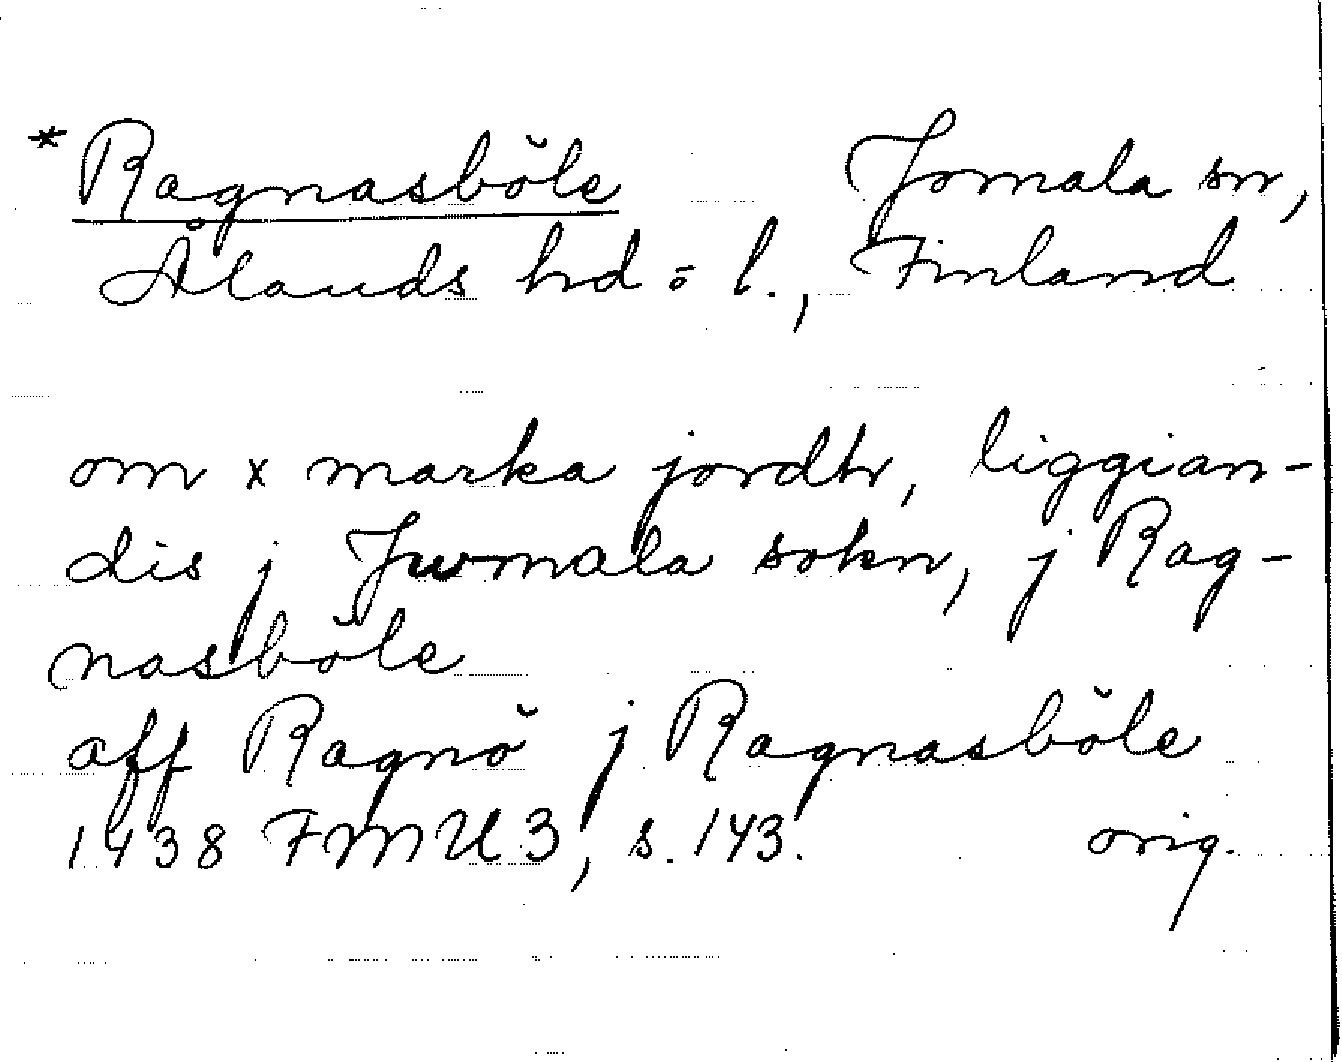 *Ragnasböle Jomala sn,
Ålands hd o l., Finland
om x marka jordh, liggian-
dis j Jwmala sokn, j Rag-
nasböle
aff Ragnö j Ragnasböle
1438 FMU 3, s. 143. orig.